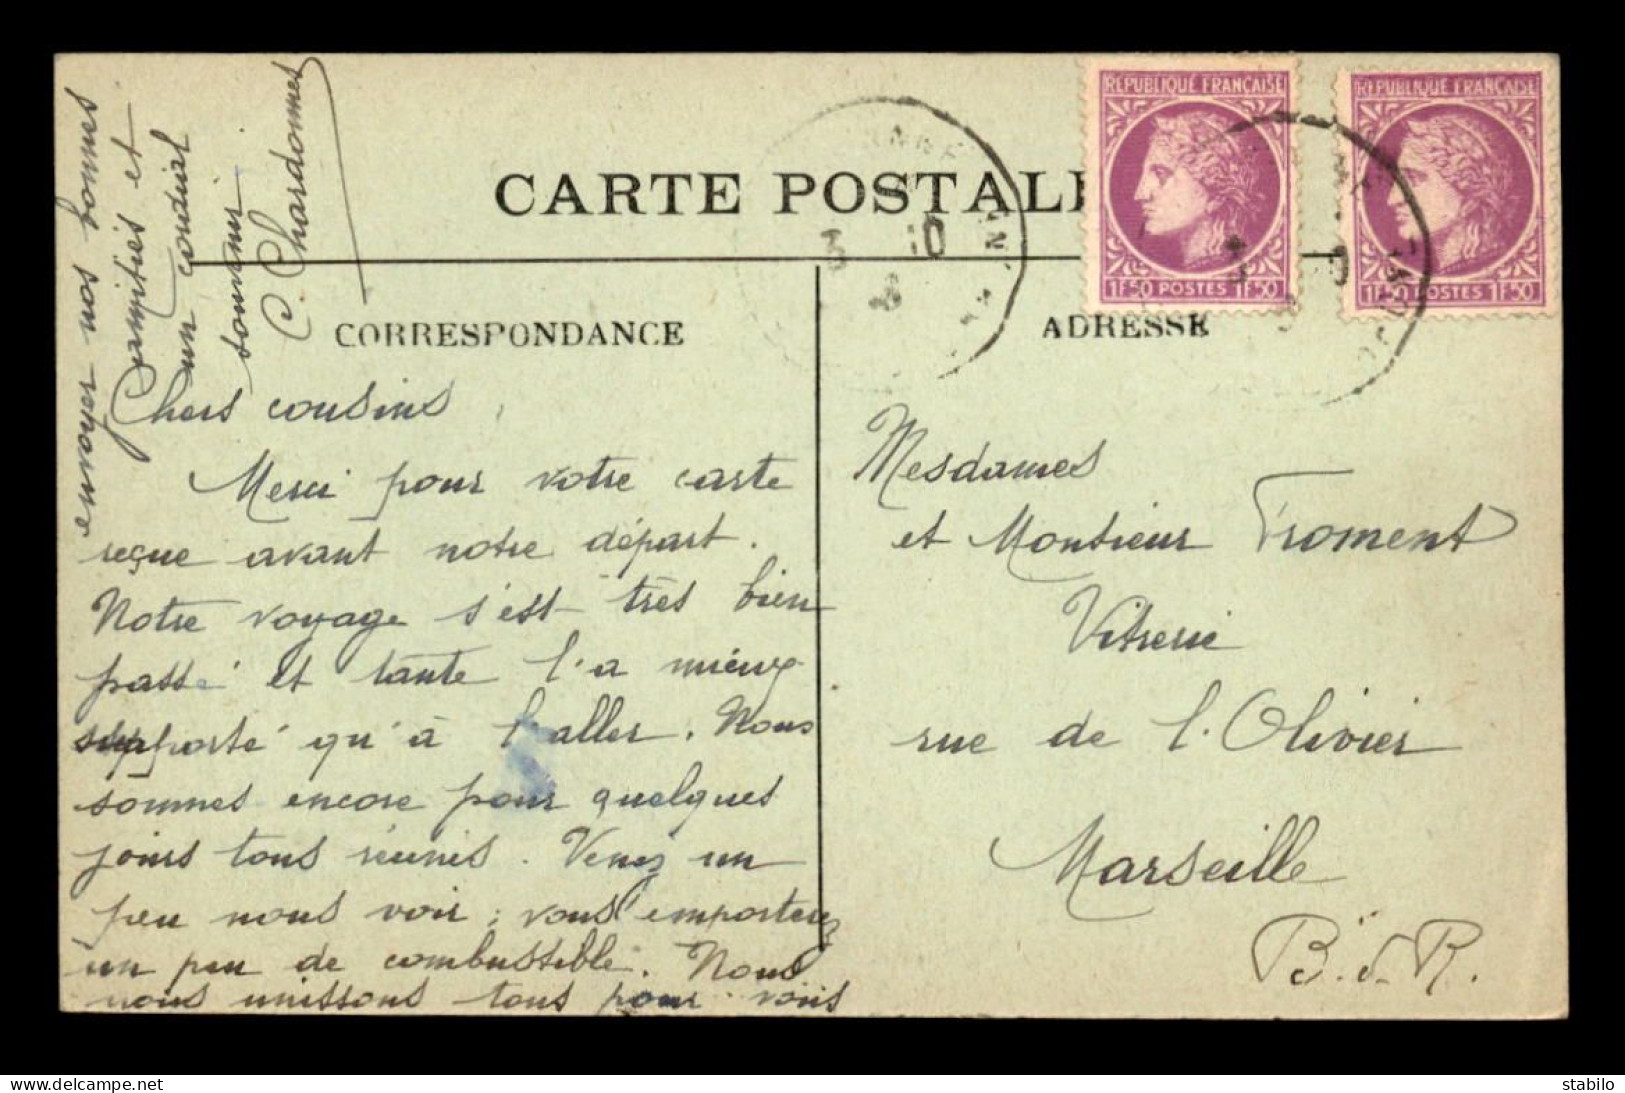 CARTE POSTALE
CORRESPONDANCE
ADRESSE
REPUBLIQUE FRANÇAISE
1F50 POSTES 1F50
REPUBLIQUE FRANÇAISE
1F50 POSTES 1F50
Chers cousins,
Merci pour votre carte
reçue avant notre départ.
Notre voyage s'est très bien
passé et tante l'a mieux
supporté qu'à l'aller. Nous
sommes encore pour quelques
jours tous réunis. Venez un
peu nous voir ; vous emporterez
un peu de combustible. Nous
nous unissons tous pour vous
envoyer son bonnes
amitiés et
un cordial
souvenir
C. Chardonnet
Mesdames
et Monsieur Froment
Vitrerie
rue de l'Olivier
Marseille
B. d. R.
delcampe.net
stabilo